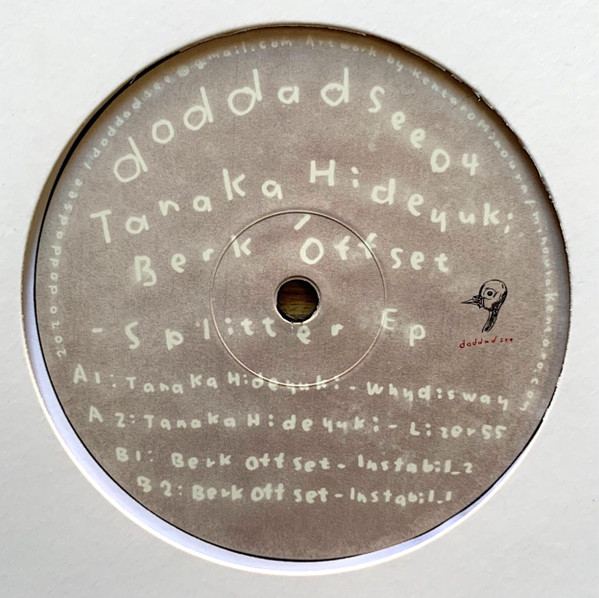 2020 doddadsee / doddadsee@gmail.com Artwork by Kentaro Minoura / minourakentaro.com
doddadsee04
Tanaka Hideyuki
/
Berk Offset
- Splitter Ep
doddadsee
A1: Tanaka Hideyuki - Whydisway
A2: Tanaka Hideyuki - Lizer55
B1: Berk Offset - Instabil_2
B2: Berk Offset - Instabil_1